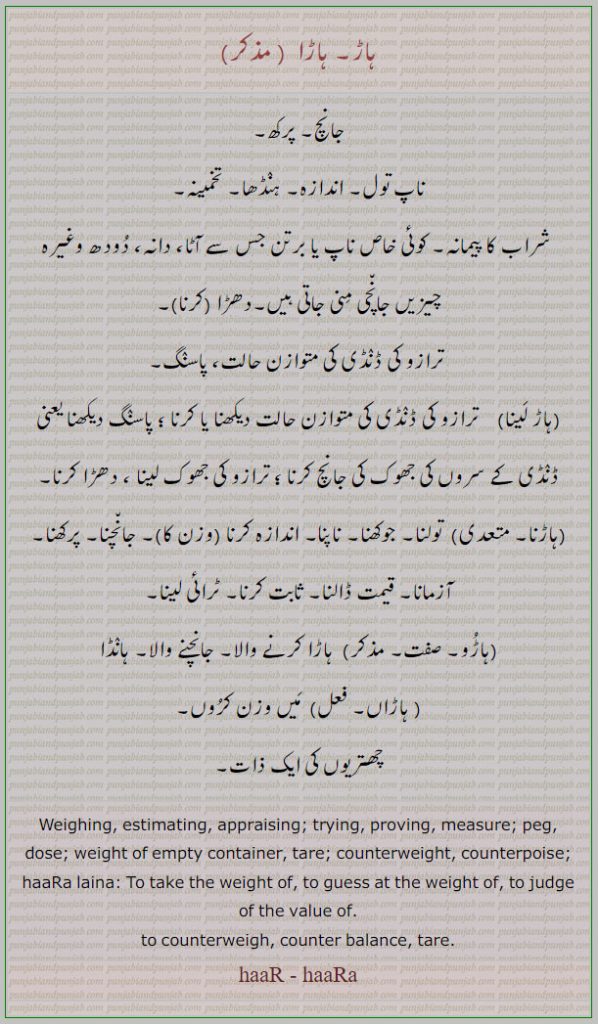 ہاڑ۔ ہاڑا (مذکر)
جانچ۔ پرکھ۔
ناپ تول۔ اندازہ۔ ہنْڈھا۔ تخمینہ۔
شراب کا پیمانہ۔ کوئی خاص ناپ یا برتن جس سے آٹا، دانہ، دُودھ وغیرہ
چیزیں جانْچی مِنی جاتی ہیں۔دھڑا (کرنا)۔
ترازو کی ڈنْڈی کی متوازن حالت، پاسنْگ۔
(ہاڑ لَینا) ترازو کی ڈنْڈی کی متوازن حالت دیکھنا یا کرنا ؛ پاسنْگ دیکھنا یعنی
ڈنْڈی کے سروں کی جھوک کی جانچ کرنا ؛ ترازو کی جھوک لینا ، دھڑا کرنا۔
(ہاڑنا۔ متعدی) تولنا۔ جوکھنا۔ ناپنا۔ اندازہ کرنا (وزن کا)۔ جانْچنا۔ پرکھنا۔
آزمانا۔ قیمت ڈالنا۔ ثابت کرنا۔ ٹرائی لینا۔
(ہاڑُو۔ صفت۔ مذکر) ہاڑا کرنے والا۔ جانچنے والا۔ ہانْڈا
( ہاڑاں۔ فعل) مَیں وزن کرُوں۔
چھتریوں کی ایک ذات۔
Weighing, estimating, appraising; trying, proving, measure; peg,
dose; weight of empty container, tare; counterweight, counterpoise;
haaRa laina: To take the weight of, to guess at the weight of, to judge
of the value of.
to counterweigh, counter balance, tare.
haaR - haaRa